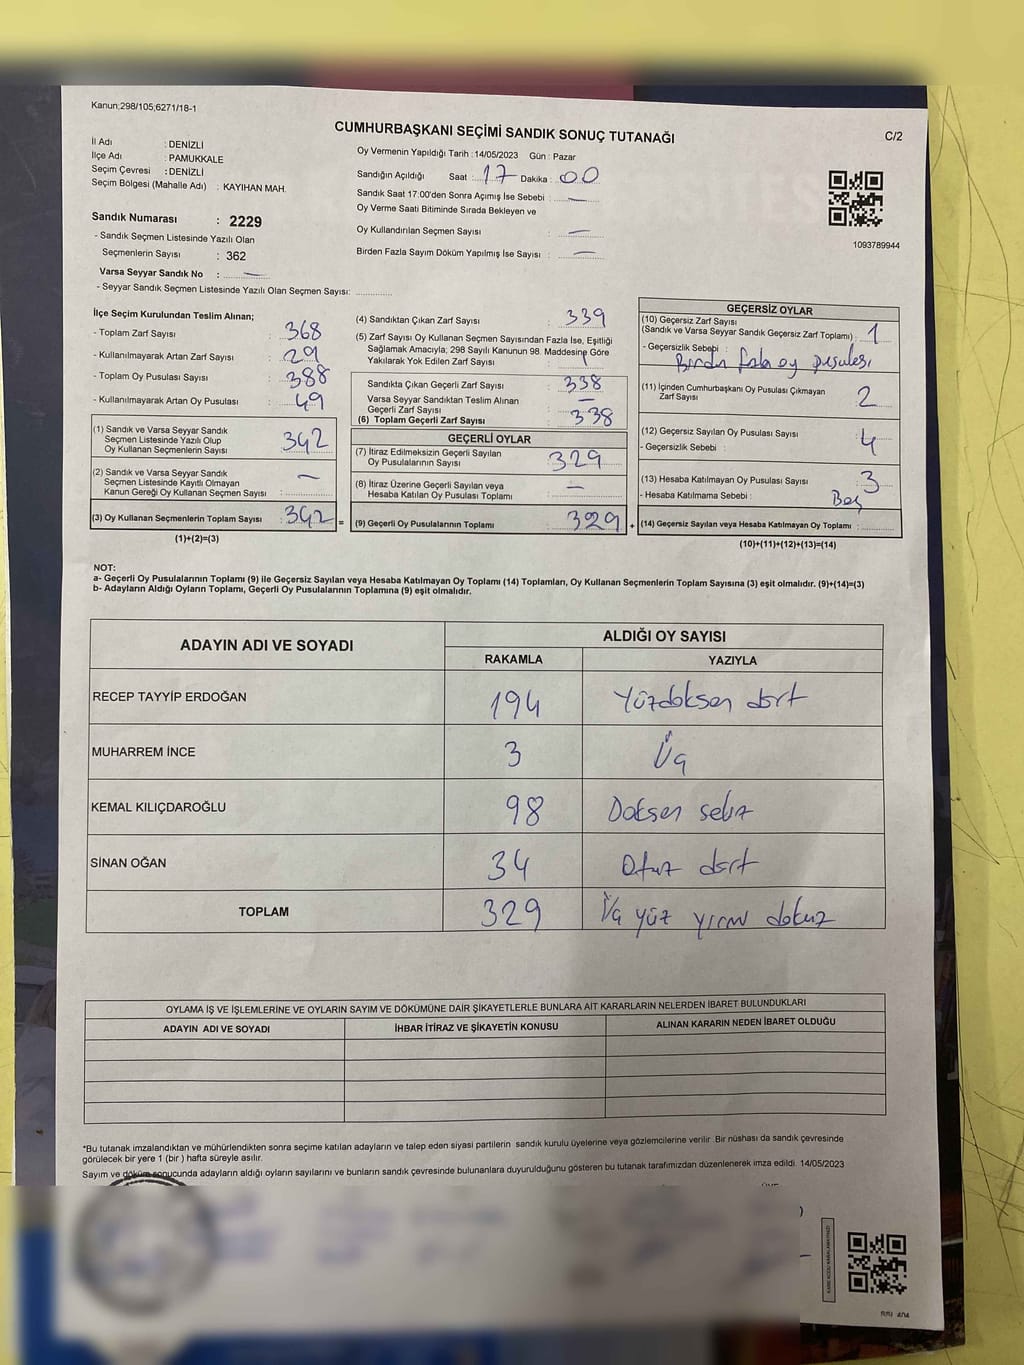 Kanun;298/105;6271/18-1
CUMHURBAŞKANI SEÇİMİ SANDIK SONUÇ TUTANAĞI
C/2
İl Adı : DENİZLİ
İlçe Adı : PAMUKKALE
Seçim Çevresi : DENİZLİ
Seçim Bölgesi (Mahalle Adı) : KAYIHAN MAH.
Sandık Numarası : 2229
- Sandık Seçmen Listesinde Yazılı Olan
Seçmenlerin Sayısı : 362
Varsa Seyyar Sandık No : —
- Seyyar Sandık Seçmen Listesinde Yazılı Olan Seçmen Sayısı:
Oy Vermenin Yapıldığı Tarih : 14/05/2023 Gün : Pazar
Sandığın Açıldığı Saat : 17 Dakika : 00
Sandık Saat 17:00'den Sonra Açımış İse Sebebi : —
Oy Verme Saati Bitiminde Sırada Bekleyen ve
Oy Kullandırılan Seçmen Sayısı : —
Birden Fazla Sayım Döküm Yapılmış İse Sayısı : —
1093789944
İlçe Seçim Kurulundan Teslim Alınan;
- Toplam Zarf Sayısı : 368
- Kullanılmayarak Artan Zarf Sayısı : 29
- Toplam Oy Pusulası Sayısı : 388
- Kullanılmayarak Artan Oy Pusulası : 49
(1) Sandık ve Varsa Seyyar Sandık
Seçmen Listesinde Yazılı Olup
Oy Kullanan Seçmenlerin Sayısı : 342
(2) Sandık ve Varsa Seyyar Sandık
Seçmen Listesinde Kayıtlı Olmayan
Kanun Gereği Oy Kullanan Seçmen Sayısı : —
(3) Oy Kullanan Seçmenlerin Toplam Sayısı : 342 =
(1)+(2)=(3)
(4) Sandıktan Çıkan Zarf Sayısı : 339
(5) Zarf Sayısı Oy Kullanan Seçmen Sayısından Fazla İse, Eşitliği
Sağlamak Amacıyla; 298 Sayılı Kanunun 98. Maddesine Göre
Yakılarak Yok Edilen Zarf Sayısı : 1
Sandıkta Çıkan Geçerli Zarf Sayısı : 338
Varsa Seyyar Sandıktan Teslim Alınan
Geçerli Zarf Sayısı : —
(6) Toplam Geçerli Zarf Sayısı : 338
GEÇERLİ OYLAR
(7) İtiraz Edilmeksizin Geçerli Sayılan
Oy Pusulalarının Sayısı : 329
(8) İtiraz Üzerine Geçerli Sayılan veya
Hesaba Katılan Oy Pusulası Toplamı : —
(9) Geçerli Oy Pusulalarının Toplamı : 329 +
GEÇERSİZ OYLAR
(10) Geçersiz Zarf Sayısı
(Sandık ve Varsa Seyyar Sandık Geçersiz Zarf Toplamı) : 1
- Geçersizlik Sebebi : Birden fazla oy pusulası
(11) İçinden Cumhurbaşkanı Oy Pusulası Çıkmayan
Zarf Sayısı : 2
(12) Geçersiz Sayılan Oy Pusulası Sayısı : 4
- Geçersizlik Sebebi :
(13) Hesaba Katılmayan Oy Pusulası Sayısı : 3
- Hesaba Katılmama Sebebi : Boş
(14) Geçersiz Sayılan veya Hesaba Katılmayan Oy Toplamı :
(10)+(11)+(12)+(13)=(14)
NOT:
a- Geçerli Oy Pusulalarının Toplamı (9) ile Geçersiz Sayılan veya Hesaba Katılmayan Oy Toplamı (14) Toplamları, Oy Kullanan Seçmenlerin Toplam Sayısına (3) eşit olmalıdır. (9)+(14)=(3)
b- Adayların Aldığı Oyların Toplamı, Geçerli Oy Pusulalarının Toplamına (9) eşit olmalıdır.
ADAYIN ADI VE SOYADI ALDIĞI OY SAYISI
RAKAMLA YAZIYLA
RECEP TAYYİP ERDOĞAN 194 Yüzdoksan dört
MUHARREM İNCE 3 Üç
KEMAL KILIÇDAROĞLU 98 Doksan sekiz
SİNAN OĞAN 34 Otuz dört
TOPLAM 329 Üç yüz yirmi dokuz
OYLAMA İŞ VE İŞLEMLERİNE VE OYLARIN SAYIM VE DÖKÜMÜNE DAİR ŞİKAYETLERLE BUNLARA AİT KARARLARIN NELERDEN İBARET BULUNDUKLARI
ADAYIN ADI VE SOYADI İHBAR İTİRAZ VE ŞİKAYETİN KONUSU ALINAN KARARIN NEDEN İBARET OLDUĞU
*Bu tutanak imzalandıktan ve mühürlendikten sonra seçime katılan adayların ve talep eden siyasi partilerin sandık kurulu üyelerine veya gözlemcilerine verilir. Bir nüshası da sandık çevresinde
görülecek bir yere 1 (bir) hafta süreyle asılır.
Sayım ve döküm sonucunda adayların aldığı oyların sayılarını ve bunların sandık çevresinde bulunanlara duyurulduğunu gösteren bu tutanak tarafımızdan düzenlenerek imza edildi. 14/05/2023